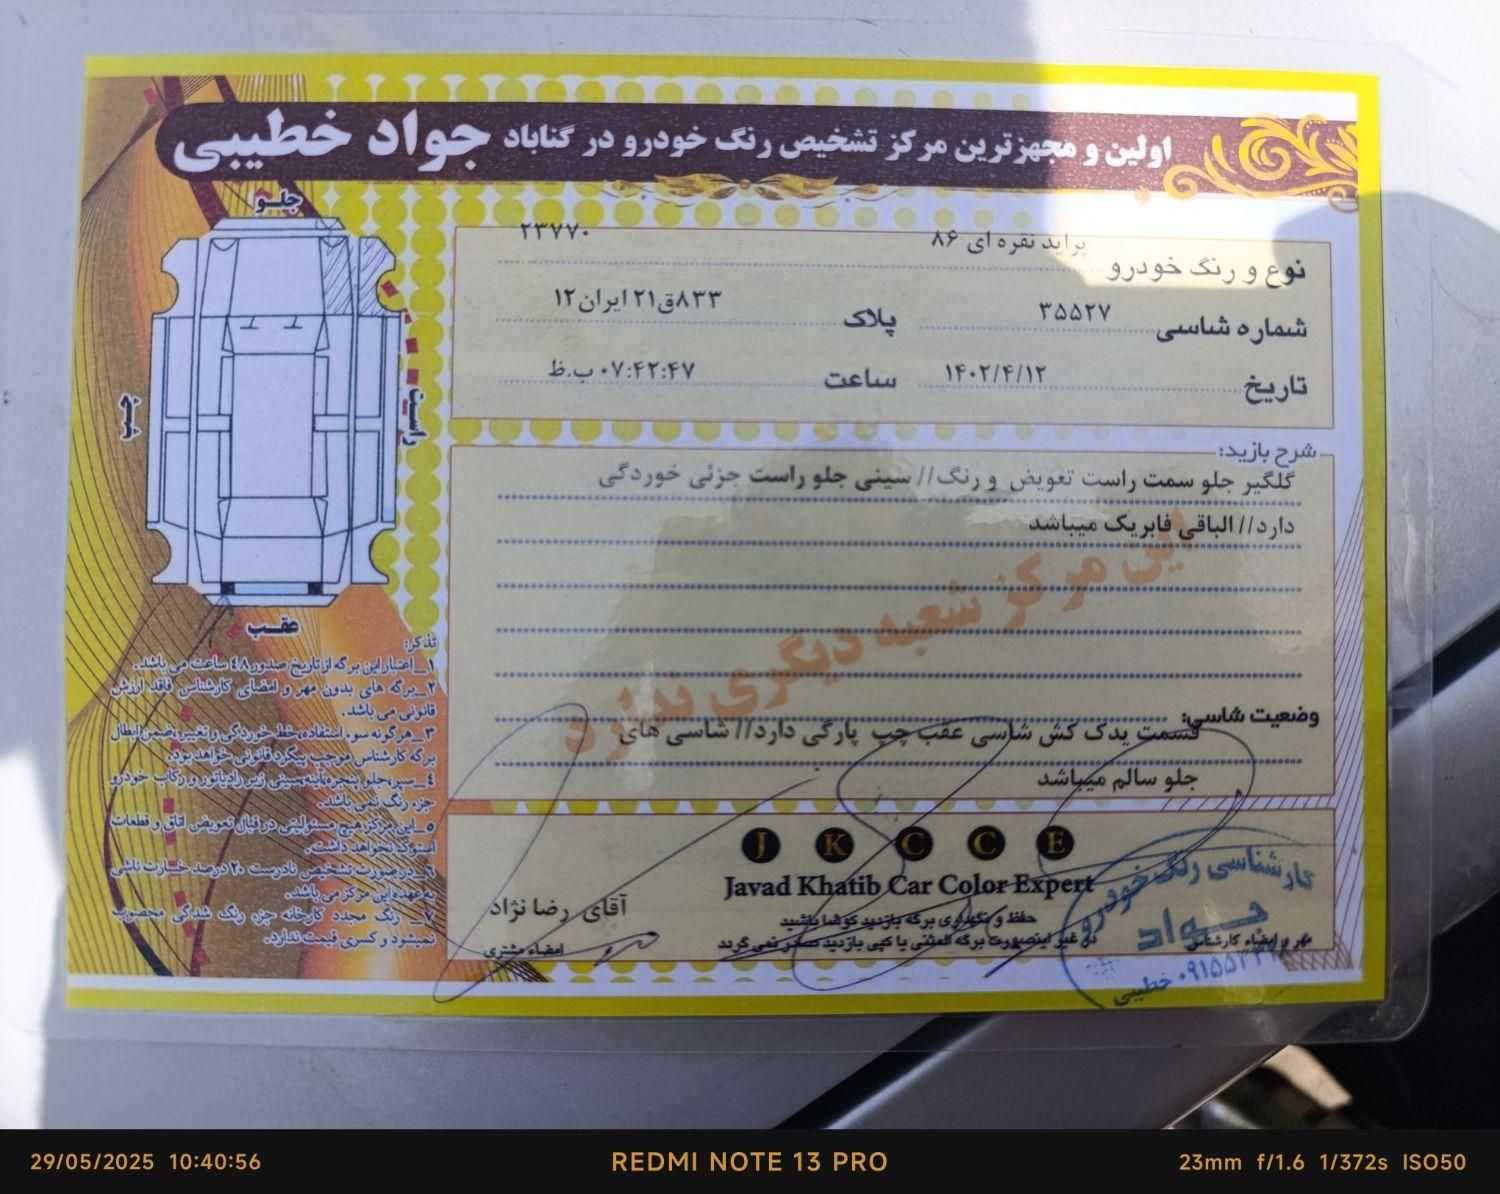 اولین و مجهزترین مرکز تشخیص رنگ خودرو در گناباد جواد خطیبی
جلو
راست
چپ
عقب
پراید نقره ای ۸۶
۲۳۷۷۰
نوع و رنگ خودرو
شماره شاسی ۳۵۵۲۷
پلاک ۸۳۳ق۲۱ ایران۱۲
تاریخ ۱۴۰۲/۴/۱۲
ساعت ۰۷:۴۲:۴۷ ب.ظ
شرح بازید:
گلگیر جلو سمت راست تعویض و رنگ// سینی جلو راست جزئی خوردگی
دارد// الباقی فابریک میباشد
این مرکز شعبه دیگری ندارد
وضعیت شاسی:
قسمت یدک کش شاسی عقب چپ پارگی دارد// شاسی های
جلو سالم میباشد
تذکر:
۱_اعتبار این برگه از تاریخ صدور ۴۸ ساعت می باشد.
۲_برگه های بدون مهر و امضای کارشناس فاقد ارزش
قانونی می باشد.
۳_هرگونه سوء استفاده، خط خوردگی و تغییر ضمن ابطال
برگه کارشناس موجب پیگرد قانونی خواهد بود.
۴_سپر جلو پنجره، آینه، سینی زیر رادیاتور و رکاب خودرو
جزء رنگ نمی باشد.
۵_این مرکز هیچ مسئولیتی در قبال تعویض اتاق و قطعات
استوک نخواهد داشت.
۶_در صورت تشخیص نادرست ۲۰ درصد خسارت ناشی
به عهده این مرکز می باشد.
۷_ رنگ مجدد کارخانه جزء رنگ شدگی محصوب
نمیشود و کسری قیمت ندارد.
J K C C E
Javad Khatib Car Color Expert
آقای رضا نژاد
امضاء مشتری
حفظ و نگهداری برگه بازدید کوشا باشید
در غیر اینصورت برگه المثنی یا کپی بازدید صادر نمی گردد
مهر و امضاء کارشناس
کارشناسی رنگ خودرو
جواد
خطیبی
29/05/2025 10:40:56
REDMI NOTE 13 PRO
23mm f/1.6 1/372s ISO50